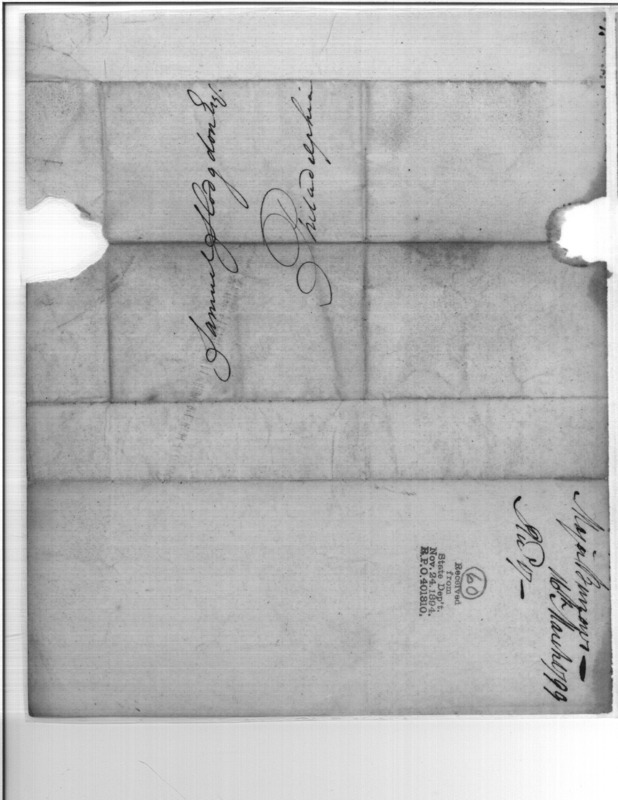 Samuel Hodgdon Esq.
Philadelphia
Major Burrows
16th March 1799
60
Received
from
State Dep't.
Nov. 24, 1894.
R.P.O. 401810.